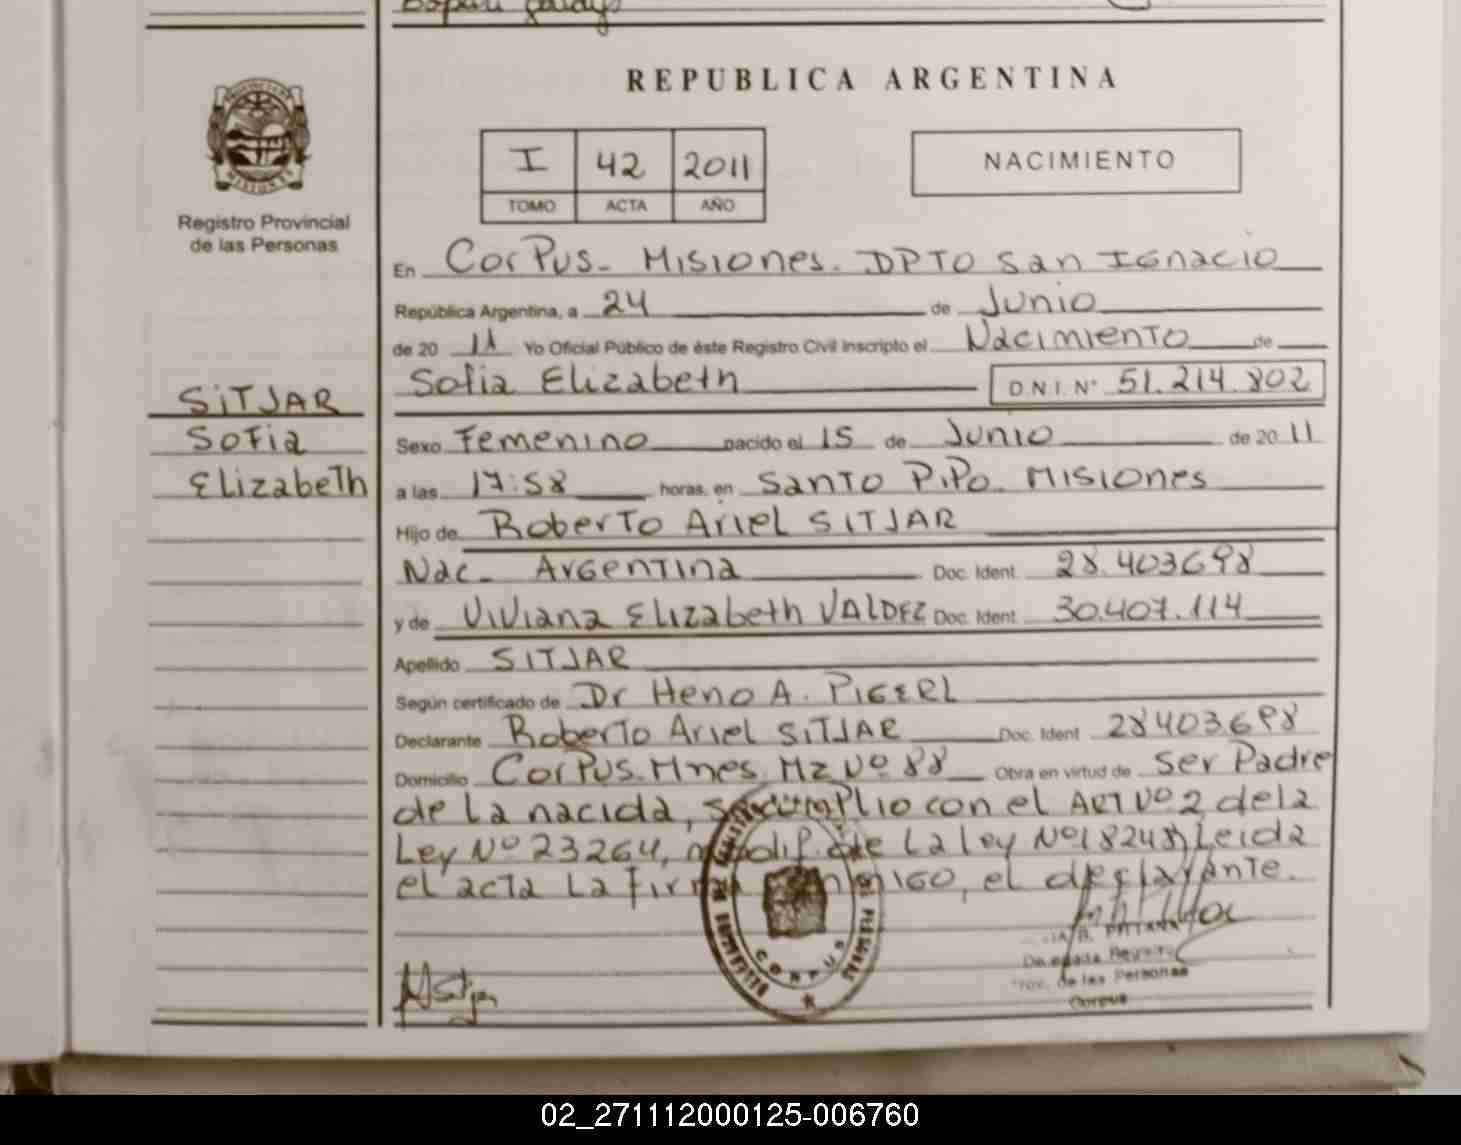 REPUBLICA ARGENTINA
PROVINCIA DE
MISIONES
Registro Provincial
de las Personas
I 42 2011
TOMO ACTA AÑO
NACIMIENTO
En Corpus- Misiones. DPTO San Ignacio
República Argentina, a 24 de Junio
de 20 11 Yo Oficial Público de éste Registro Civil inscripto el Nacimiento de
Sofia Elizabeth D.N.I. N° 51.214.802
SITJAR
Sofia
Elizabeth
Sexo Femenino nacido el 15 de Junio de 2011
a las 17:58 horas, en Santo Pipo. Misiones
Hijo de Roberto Ariel SITJAR
Nac. Argentina Doc. Ident. 28.403698
y de Viviana Elizabeth VALDEZ Doc. Ident. 30.407.114
Apellido SITJAR
Según certificado de Dr Heno A. PIGERL
Declarante Roberto Ariel SITJAR Doc. Ident 28403.698
Domicilio Corpus. Mnes. Mz Nº 88 Obra en virtud de Ser Padre
de La nacida, se cumplio con el ART Nº 2 de la
Ley Nº 23264, modif. de La ley Nº 18248, Leida
el acta La firma conmigo, el declarante.
CORPUS
Delegada Registro
Prov. de las Personas
Corpus
02_271112000125-006760